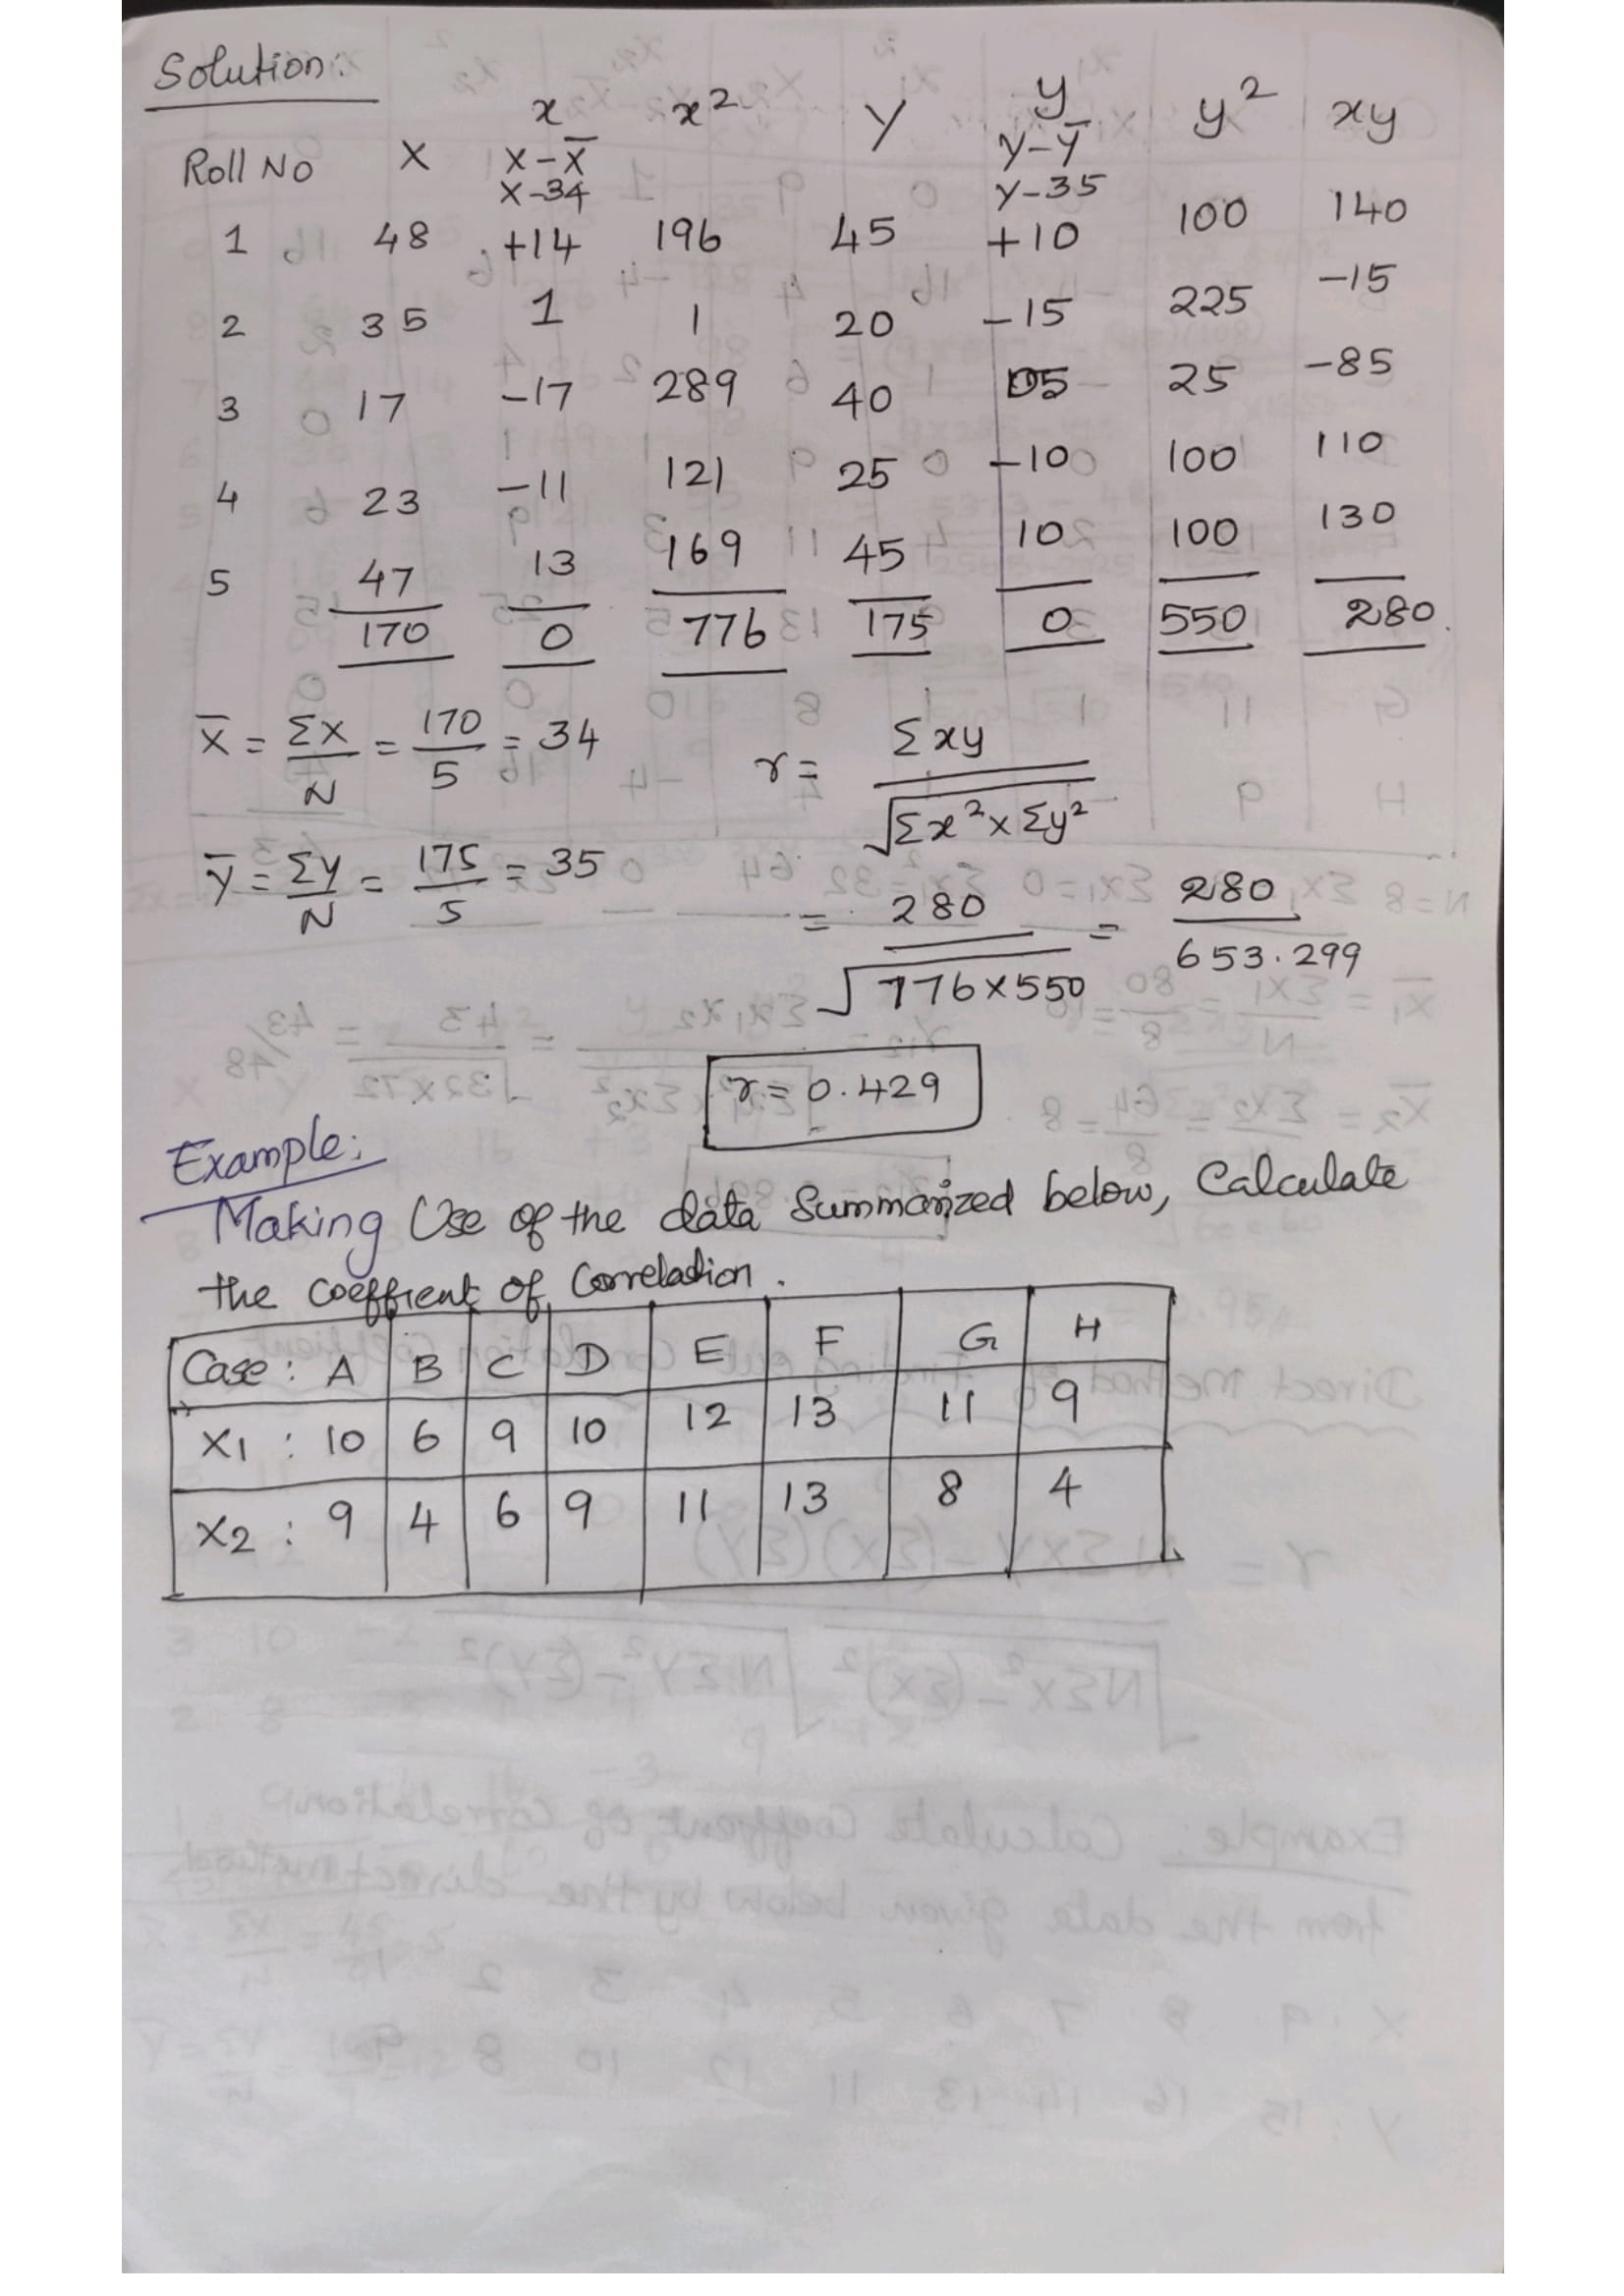 Solution:
x x² Y y y² xy
Roll No X X-X̄ Y-Ȳ
X-34 Y-35
1 48 +14 196 45 +10 100 140
2 35 1 1 20 -15 225 -15
3 17 -17 289 40 05 25 -85
4 23 -11 121 25 -10 100 110
5 47 13 169 45 10 100 130
170 0 776 175 0 550 280.
X̄ = ΣX/N = 170/5 = 34
r = Σxy / √Σx² x Σy²
Ȳ = ΣY/N = 175/5 = 35
= 280 / √776x550 = 280 / 653.299
r = 0.429
Example:
Making Use of the data Summarized below, Calculate
the Coeffient of Correlation.
Case : A B C D E F G H
X1 : 10 6 9 10 12 13 11 9
X2 : 9 4 6 9 11 13 8 4